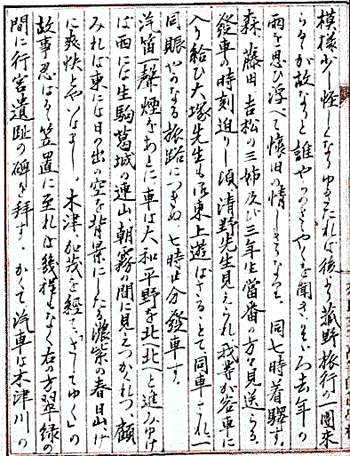 模様少し怪しくなりゆきたれば後より蔵野旅行の一團来
らるが故なりと誰やらのさゝやくを聞きそゞろ去年の
雨を思ひ浮べて懐旧の情しきりなりき。同七時着駅す。
森、藤田、吉松の三姉及び三年生当番の方々見送らる。
發車の時刻迫りし頃清野先生見えられ我等が客車に
入り給ひ大塚先生も御東上遊ばさるゝとて同車され一
同賑やかなる旅路につきぬ七時十分發車す。
汽笛一聲煙をあとに車は大和平野を北北へと進みゆけ
ば西には生駒葛城の連山、朝霧の間に見えつかくれつ、顧
みれば東には日の出の空を背景にしたる濃紫の春日山げ
に爽快と云はまし。木津加茂を經て「さしてゆく」の
故事忍ばるゝ笠置に至れば幾程もなく右の方翠緑の
間に行宮遺趾の碑を拜す。かくて汽車は木津川の